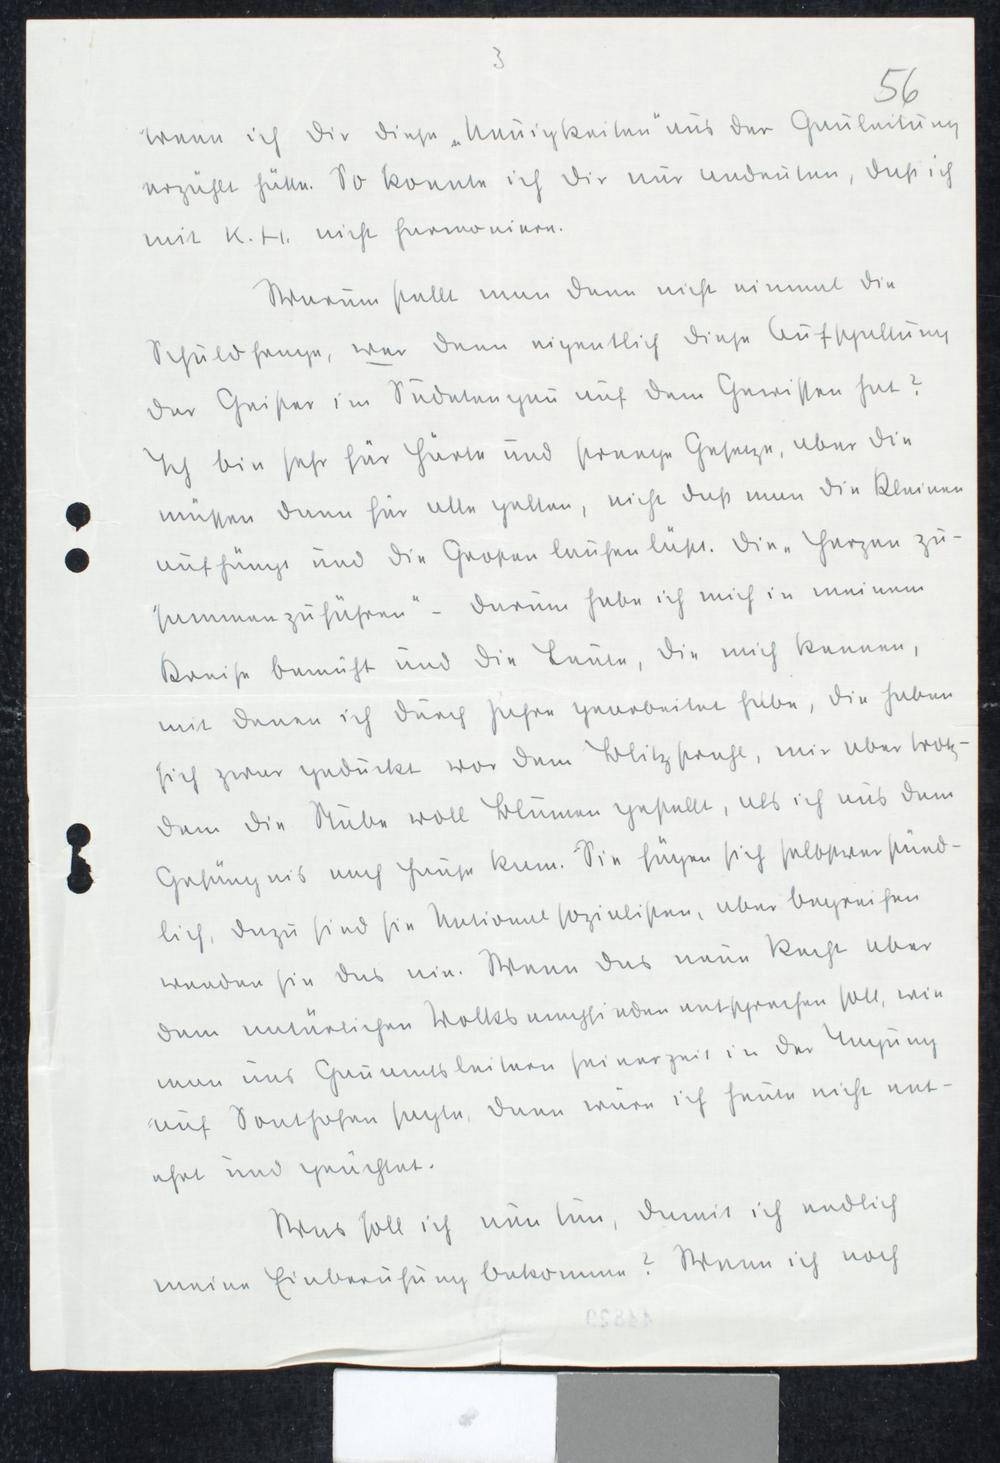 3
56
wenn ich Dir diese „Neuigkeiten" aus der Gauleitung
erzählt hätte. So konnte ich Dir nur andeuten, daß ich
mit K. H. nicht harmoniere.
Warum stellt man denn nicht einmal die
Schuldfrage, wer denn eigentlich diese Aufspaltung
der Geister im Sudetengau auf dem Gewissen hat?
Ich bin sehr für Härte und strenge Gesetze, aber die
müssen dann für alle gelten, nicht daß man die Kleinen
aufhängt und die Großen laufen läßt. Die „Herzen zu-
sammenzuführen" - darum habe ich mich in meinem
Kreise bemüht und die Leute, die mich kennen,
mit denen ich durch Jahre gearbeitet habe, die haben
sich zwar geduckt vor dem Blitzstrahl, mir aber trotz-
dem die Stube voll Blumen gestellt, als ich aus dem
Gefängnis nach Hause kam. Sie fügen sich selbstverständ-
lich, dazu sind sie Nationalsozialisten, aber begreifen
werden sie das nie. Wenn das neue Recht aber
dem natürlichen Volksempfinden entsprechen soll, wie
man uns Gauamtsleitern seinerzeit in der Tagung
auf Sonthofen sagte, dann wäre ich heute nicht ent-
ehrt und geächtet.
Was soll ich nun tun, damit ich endlich
meine Einberufung bekomme? Wenn ich noch